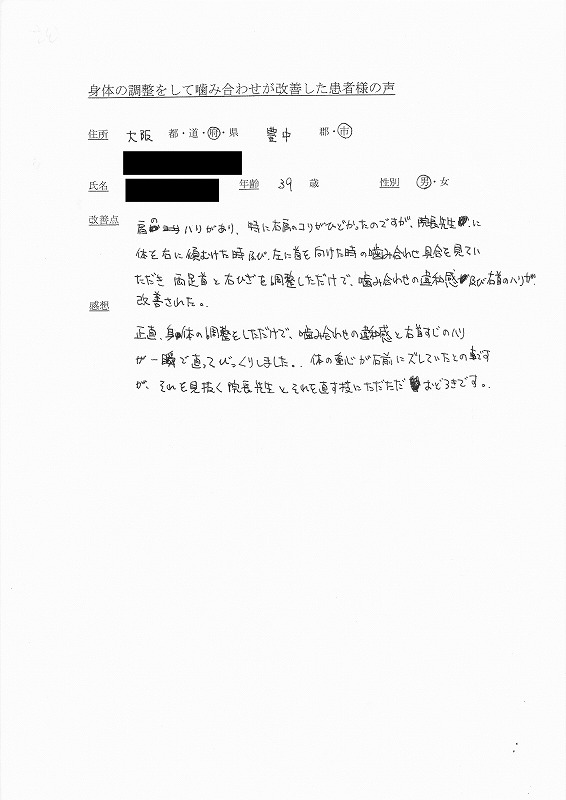 身体の調整をして噛み合わせが改善した患者様の声
住所 大阪 都・道・府・県 豊中 郡・市
氏名 年齢 39 歳 性別 男・女
改善点
肩のハリがあり、特に右肩のコリがひどかったのですが、院長先生に
体を右に傾むけた時及び、左に首を向けた時の噛み合わせ具合を見てい
ただき 両足首と右ひざを調整しただけで、噛み合わせの違和感及び右首のハリが
改善された。
感想
正直、身体の調整をしただけで、噛み合わせの違和感と右首すじのハリ
が一瞬で直ってびっくりしました。体の重心が右前にズレていたとの事です
が、それを見抜く院長先生とそれを直す技にただただおどろきです。